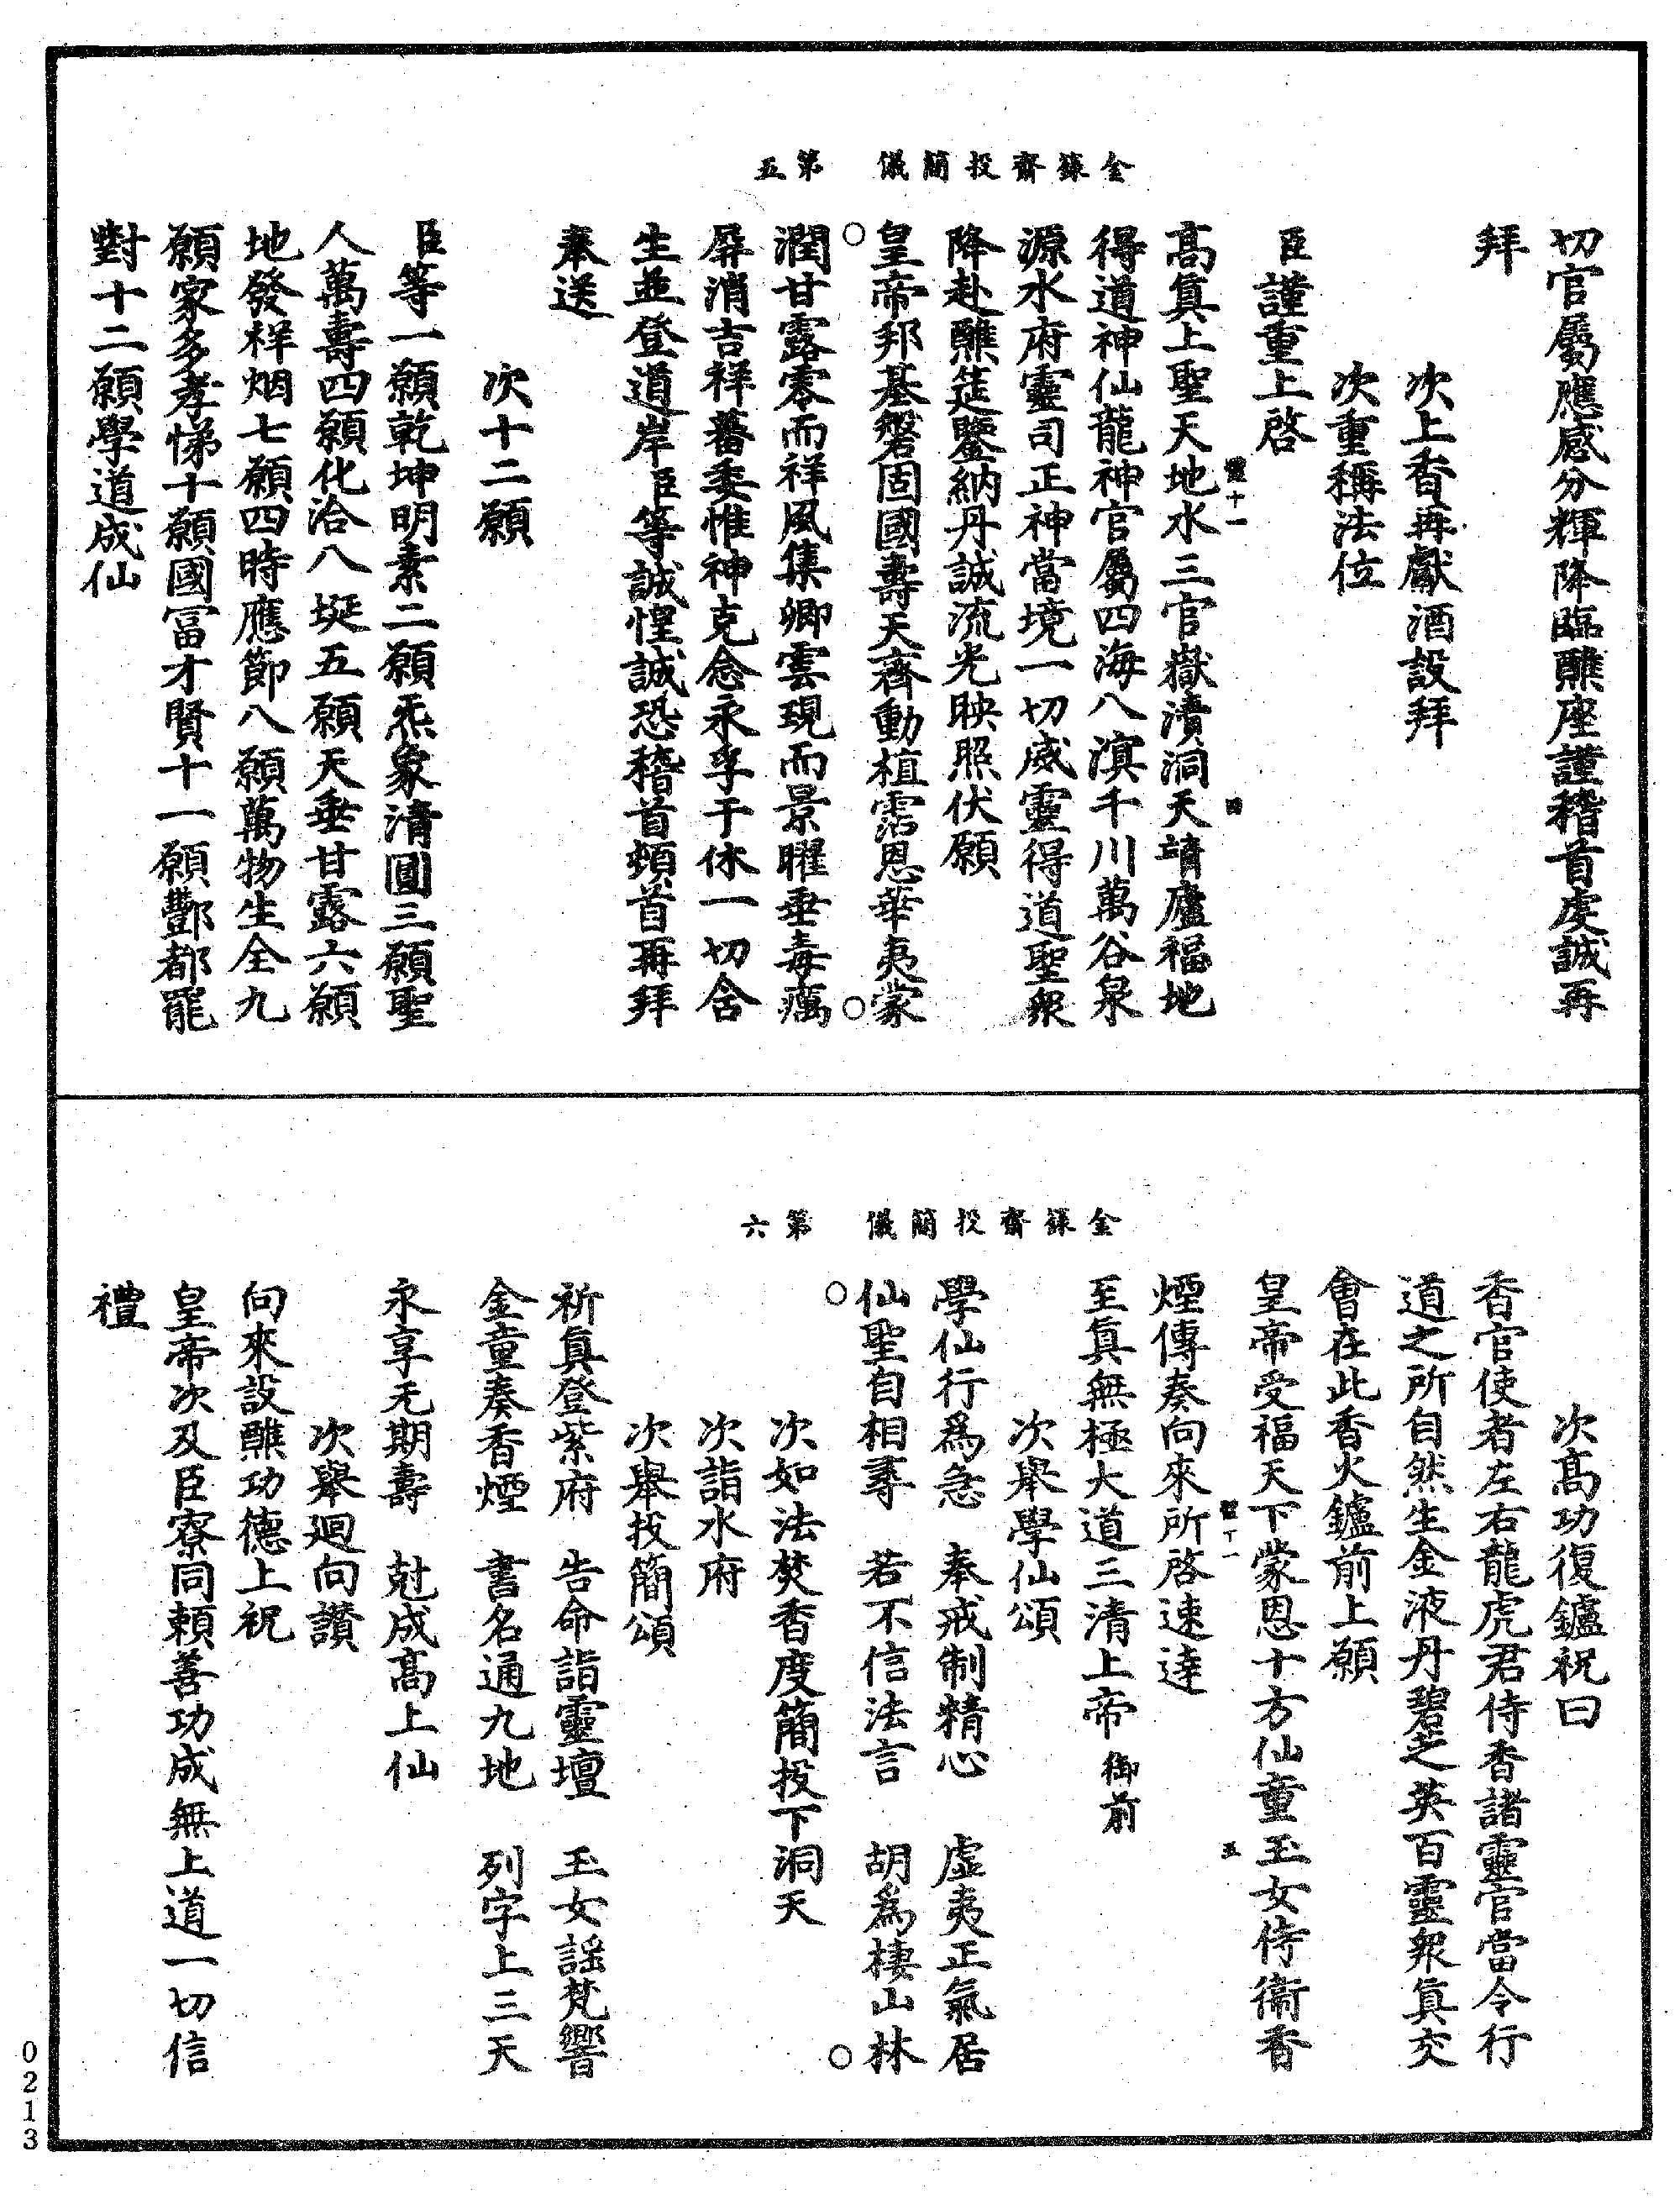 金籙齋投簡儀　第五
切官屬應感分輝降臨醮座謹稽首虔誠再
拜
次上香再獻酒設拜
次重稱法位
臣謹重上啓
高眞上聖天地水三官嶽瀆洞天靖廬福地
得道神仙龍神官屬四海八溟千川萬谷泉
源水府靈司正神當境一切威靈得道聖衆
降赴醮筵鑒納丹誠流光映照伏願
皇帝邦基磐固國壽天齊動植霑恩華夷蒙
潤甘露零而祥風集卿雲現而景曜垂毒癘
屏消吉祥蕃委惟神克念永孚于休一切含
生並登道岸臣等誠惶誠恐稽首頓首再拜
奉送
次十二願
臣等一願乾坤明素二願炁象清圓三願聖
人萬壽四願化洽八埏五願天垂甘露六願
地發祥烟七願四時應節八願萬物生全九
願家多孝悌十願國富才賢十一願酆都罷
對十二願學道成仙
金籙齋投簡儀　第六
次高功復鑪祝曰
香官使者左右龍虎君侍香諸靈官當令行
道之所自然生金液丹碧芝英百靈衆眞交
會在此香火鑪前上願
皇帝受福天下蒙恩十方仙童玉女侍衞香
煙傳奏向來所啓速達
至眞無極大道三清上帝　御前
次舉學仙頌
學仙行爲急　奉戒制精心　虛夷正氣居
仙聖自相尋　若不信法言　胡爲棲山林
次如法焚香度簡投下洞天
次詣水府
次舉投簡頌
祈眞登紫府　告命詣靈壇　玉女謡梵響
金童奏香煙　書名通九地　列字上三天
永享无期壽　尅成高上仙
次舉迴向讚
向來設醮功德上祝
皇帝次及臣寮同賴善功成無上道一切信
禮
0213